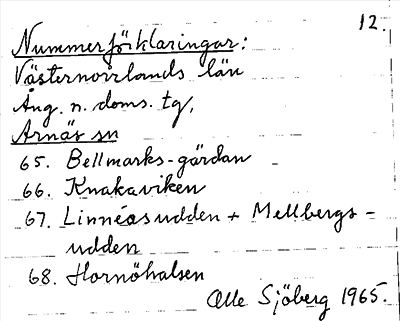 12.
Nummerförklaringar:
Västernorrlands län
Ång. n. doms. tg,
Arnäs sn
65. Bellmarks-gärdan
66. Knakaviken
67. Linnéasudden + Mellbergs-
udden
68. Hornöhalsen
Olle Sjöberg 1965.